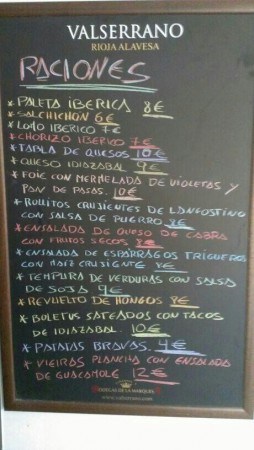 VALSERRANO
RIOJA ALAVESA
RACIONES
* PALETA IBERICA 8€
* SALCHICHON 6€
* LOMO IBERICO 7€
* CHORIZO IBERICO 7€
* TABLA DE QUESOS 10€
* QUESO IDIAZABAL 9€
* FOIE CON MERMELADA DE VIOLETAS Y
PAN DE PASAS. 10€
* ROLLITOS CRUJIENTES DE LANGOSTINO
CON SALSA DE PUERRO 8€
* ENSALADA DE QUESO DE CABRA
CON FRUTOS SECOS 8€
* ENSALADA DE ESPARRAGOS TRIGUEROS
CON MAIZ CRUJIENTE 8€
* TEMPURA DE VERDURAS CON SALSA
DE SOJA 9€
* REVUELTO DE HONGOS 8€
* BOLETUS SATEADOS CON TACOS
DE IDIAZABAL. 10€
* PATATAS BRAVAS. 4€
* VIEIRAS PLANCHA CON ENSALADA
DE GUACAMOLE 12€
VIÑEDOS DE LA MARQUESA
www.valserrano.com